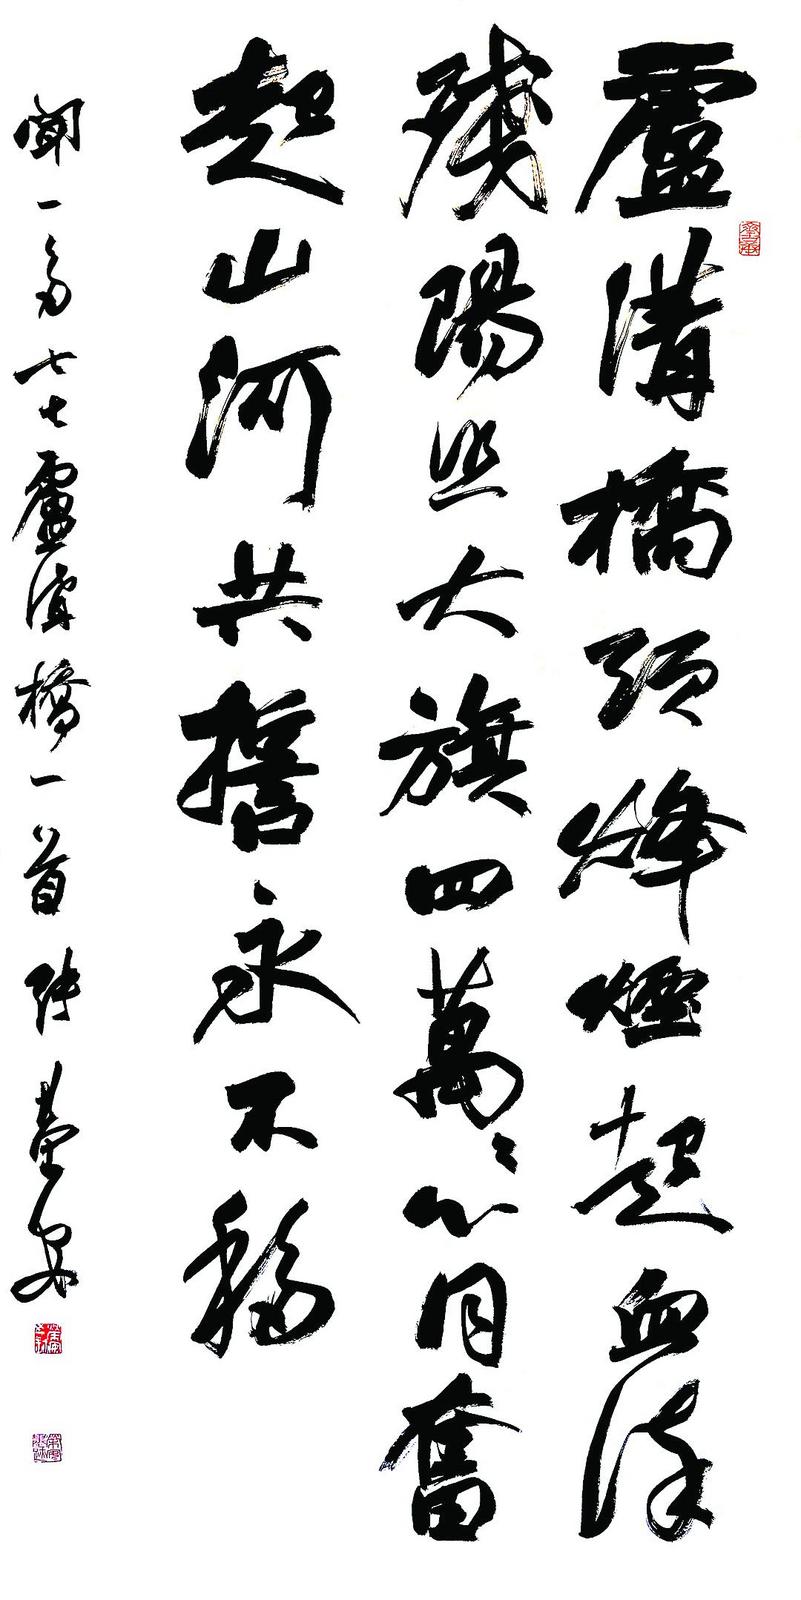 盧溝橋頭烽煙起血染
殘陽照大旗四萬〻心同奮
起山河共誓永不移
聞一多七七盧溝橋一首